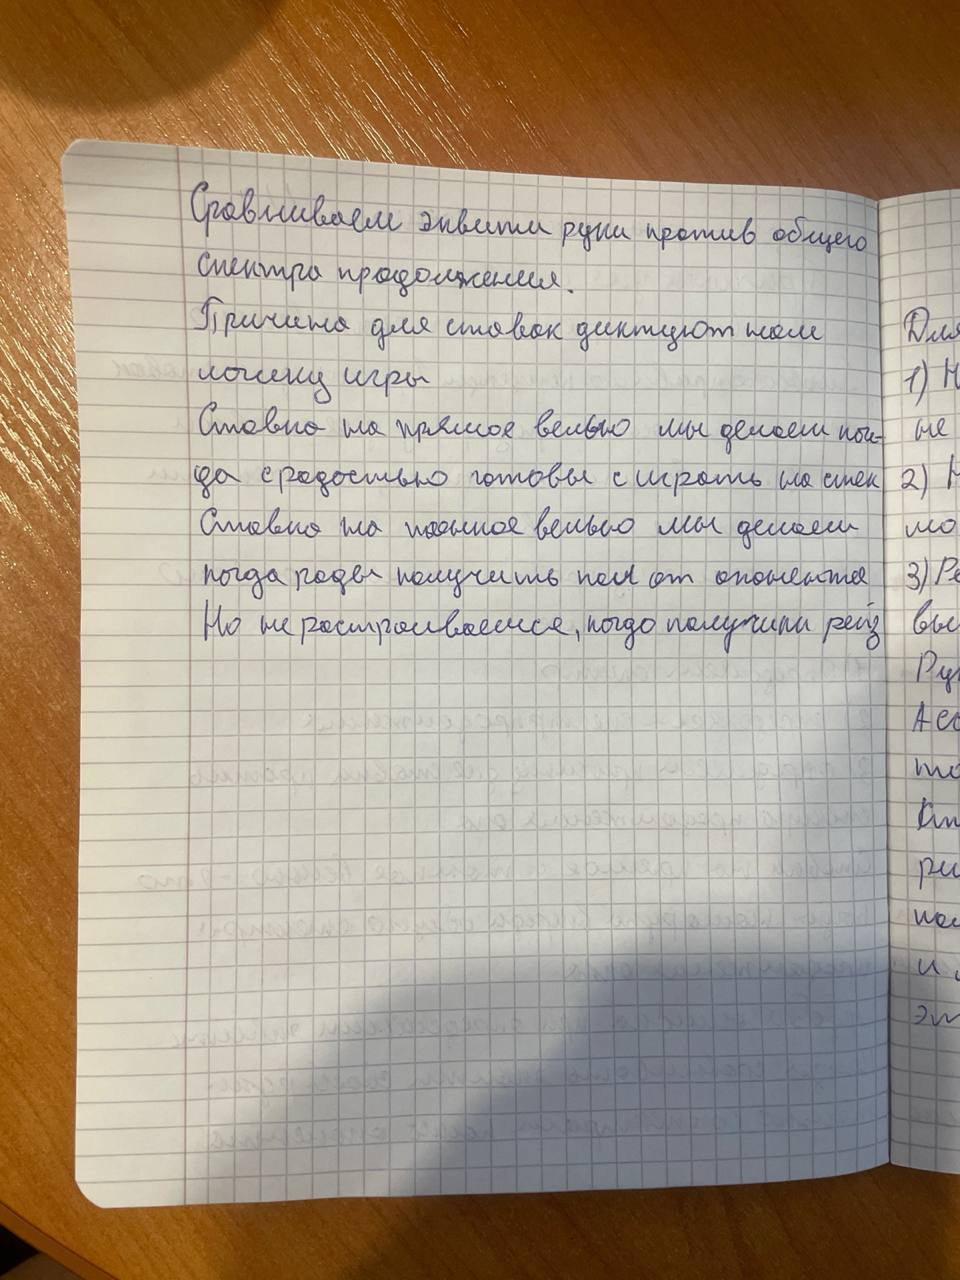 Сравниваем эквити руки против общего
спектра продолжения.
Причина для ставок диктуют нам
логику игры
Ставка на прямое велью мы делаем ког-
да с радостью готовы сыграть на стек
Ставка на тонкое велью мы делаем
когда рады получить колл от опонента
Но не растраиваемся, когда получили рейз
Для
1) Н
не
2) Н
мо
3) Ре
выс
Рук
то
ри
и
эт